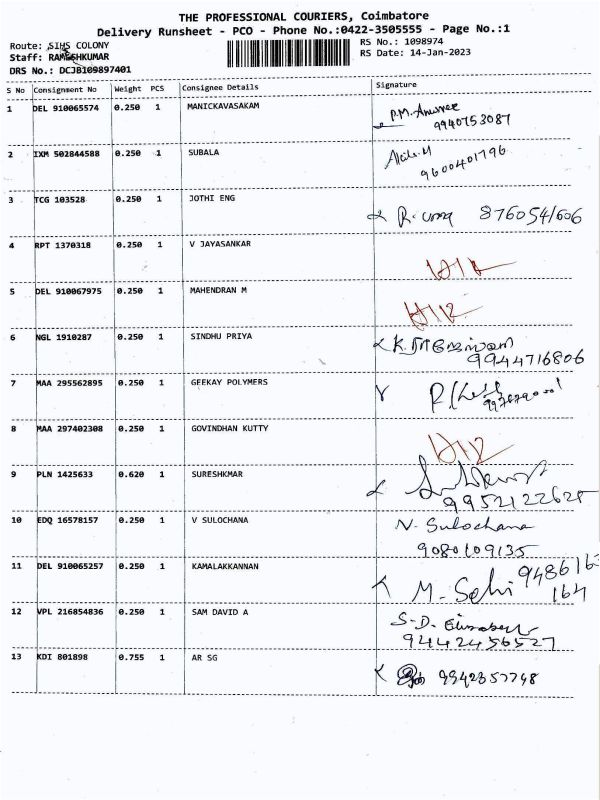 THE PROFESSIONAL COURIERS, Coimbatore
Delivery Runsheet - PCO - Phone No.:0422-3505555 - Page No.:1
Route: SIHS COLONY RS No.: 1098974
Staff: RAMESHKUMAR RS Date: 14-Jan-2023
DRS No.: DCJB109897401
S No Consignment No Weight PCS Consignee Details Signature
1 DEL 910065574 0.250 1 MANICKAVASAKAM P.M.
9940753087
2 IXM 502844588 0.250 1 SUBALA
9600401796
3 TCG 103528 0.250 1 JOTHI ENG R. uma 8760541606
4 RPT 1370318 0.250 1 V JAYASANKAR
5 DEL 910067975 0.250 1 MAHENDRAN M
6 NGL 1910287 0.250 1 SINDHU PRIYA
9944716806
7 MAA 295562895 0.250 1 GEEKAY POLYMERS
8 MAA 297402308 0.250 1 GOVINDHAN KUTTY
9 PLN 1425633 0.620 1 SURESHKMAR
9952122628
10 EDQ 16578157 0.250 1 V SULOCHANA V. Sulochana
9080109135
11 DEL 910065257 0.250 1 KAMALAKKANNAN M. Selvi 9486163
164
12 VPL 216854836 0.250 1 SAM DAVID A S.D. Elizabeth
9442456527
13 KDI 801898 0.755 1 AR SG 9942357748